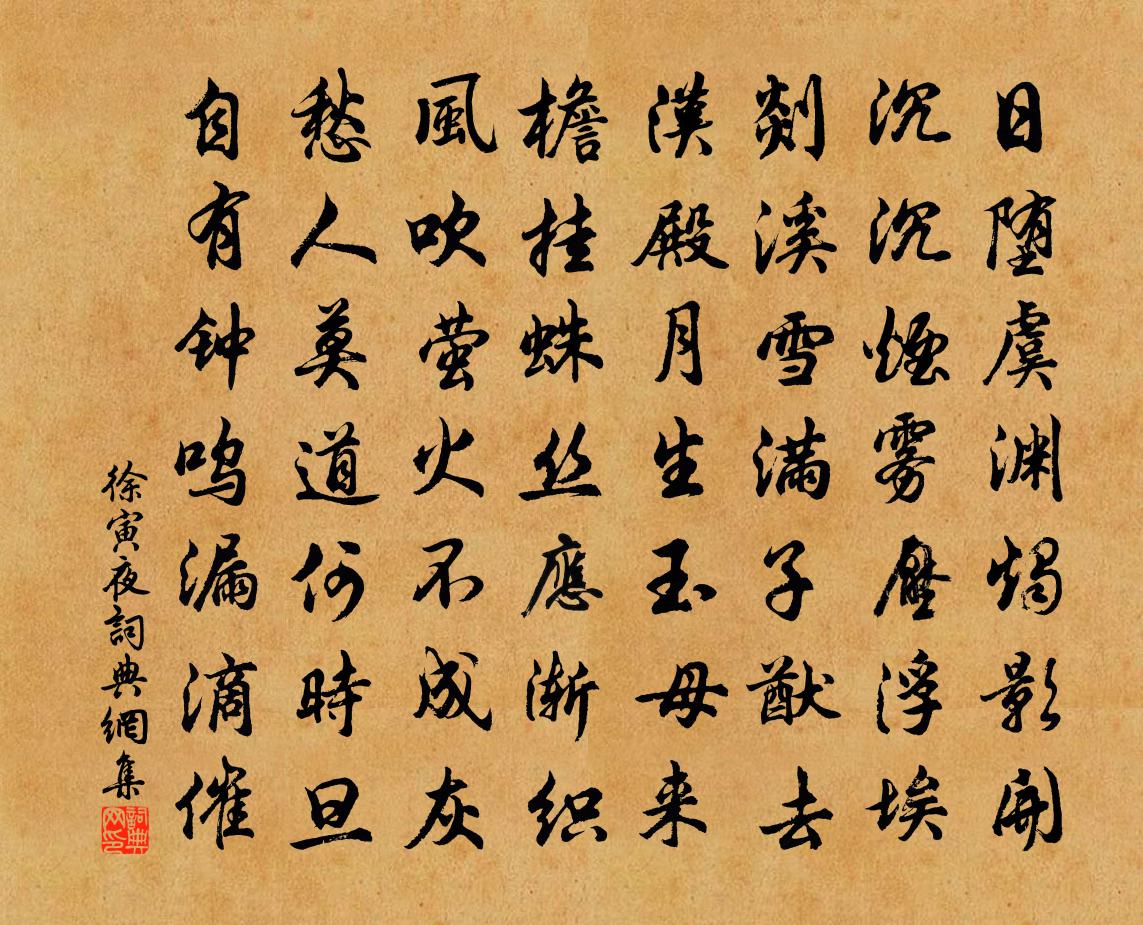 日堕虞渊烛影開
沉沉煙雾壓浮埃
剡溪雪满子猷去
漢殿月生王母来
檐挂蛛丝應渐织
風吹萤火不成灰
愁人莫道何時旦
自有钟鸣漏滴催
徐寅夜詞典網集
詞典网印